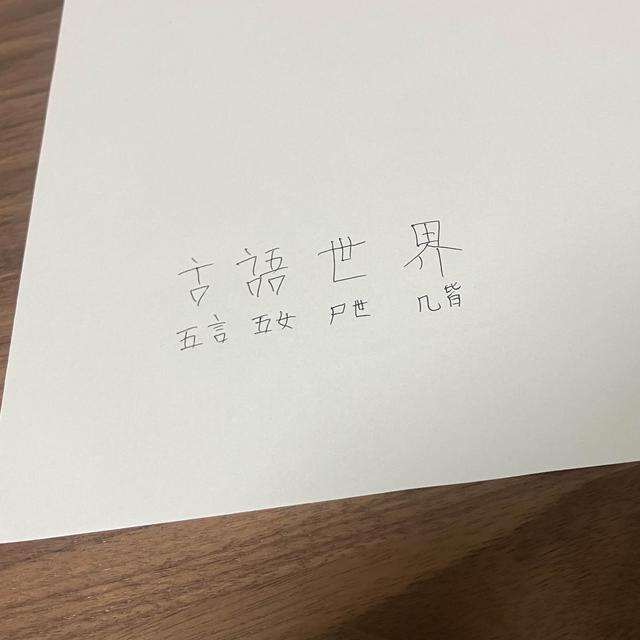 言語世界
五言 五女 尸世 几皆